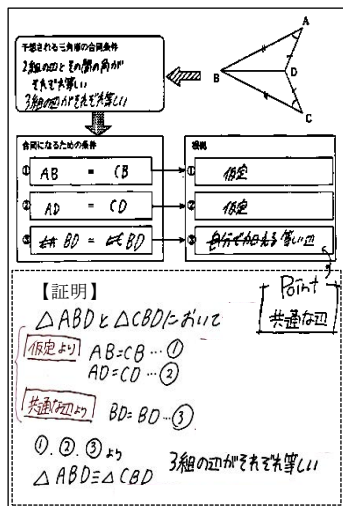 予想される三角形の合同条件
2組の辺とその間の角が
それぞれ等しい
3組の辺がそれぞれ等しい
A
B
D
C
合同になるための条件
根拠
① AB = CB
① 仮定
② AD = CD
② 仮定
③ BD = BD
③ 自分で加える等しい辺
Point
共通な辺
【証明】
△ABDと△CBDにおいて
仮定より AB=CB…①
AD=CD…②
共通な辺より BD=BD…③
①.②.③より 3組の辺がそれぞれ等しい
△ABD≡△CBD